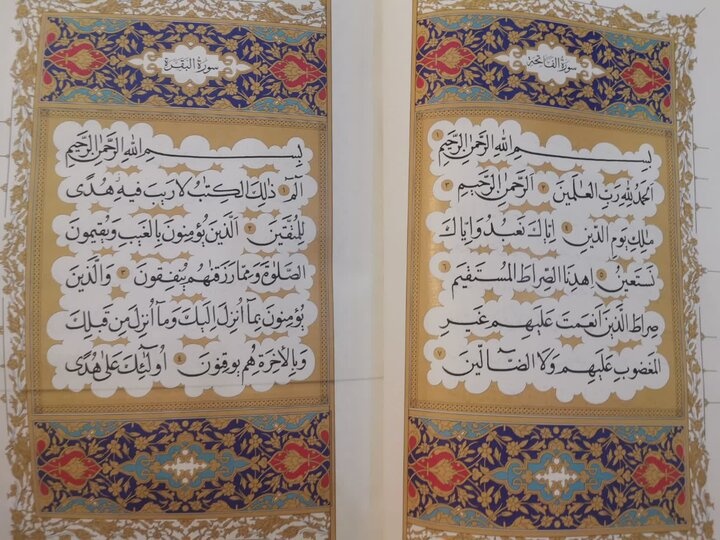 سورة الفاتحة
بِسْمِ اللهِ الرَّحْمٰنِ الرَّحِيمِ ١
اَلْحَمْدُ لِلّٰهِ رَبِّ الْعٰالَمِينَ ٢ اَلرَّحْمٰنِ الرَّحِيمِ ٣
مٰالِكِ يَوْمِ الدِّينِ ٤ اِيّٰاكَ نَعْبُدُ وَاِيّٰاكَ
نَسْتَعِينُ ٥ اِهْدِنَا الصِّرٰاطَ الْمُسْتَقِيمَ ٦
صِرٰاطَ الَّذِينَ اَنْعَمْتَ عَلَيْهِمْ غَيْرِ
الْمَغْضُوبِ عَلَيْهِمْ وَلَا الضّٰالِّينَ ٧
سورة البقرة
بِسْمِ اللهِ الرَّحْمٰنِ الرَّحِيمِ
الٓمٓ ١ ذٰلِكَ الْكِتٰبُ لٰا رَيْبَ فِيهِ هُدًى
لِلْمُتَّقِينَ ٢ اَلَّذِينَ يُؤْمِنُونَ بِالْغَيْبِ وَيُقِيمُونَ
الصَّلٰوةَ وَمِمّٰا رَزَقْنٰاهُمْ يُنْفِقُونَ ٣ وَالَّذِينَ
يُؤْمِنُونَ بِمٰا اُنْزِلَ اِلَيْكَ وَمٰا اُنْزِلَ مِنْ قَبْلِكَ
وَبِالْاٰخِرَةِ هُمْ يُوقِنُونَ ٤ اُولٰئِكَ عَلٰى هُدًى